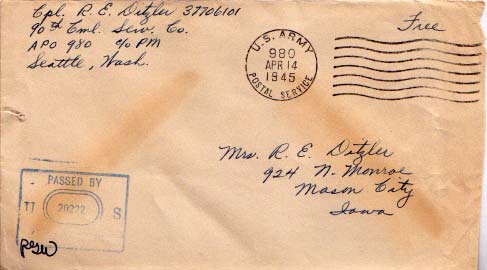 Cpl. R. E. Ditzler 37706101
90th Cml. Serv. Co.
APO 980 % PM
Seattle, Wash.
Free
U.S. ARMY
980
APR 14
1945
POSTAL SERVICE
Mrs. R. E. Ditzler
924 N. Monroe
Mason City
Iowa
PASSED BY
U 20222 S